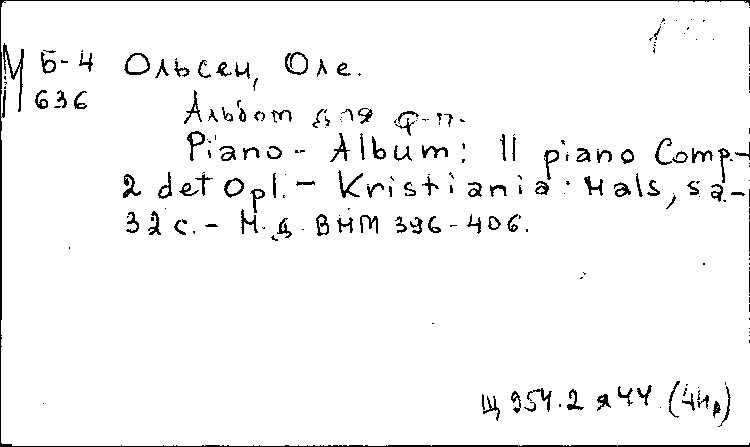 М Б-4 Ольсен, Оле.
636
Альбом для ф-п.
Piano - Album: 11 piano Comp.-
2 det Opl. - Kristiania: Hals, s.a.-
32 с. - Н.Д. ВНМ 396-406.
Щ 954.2 я 44 (4Нр)